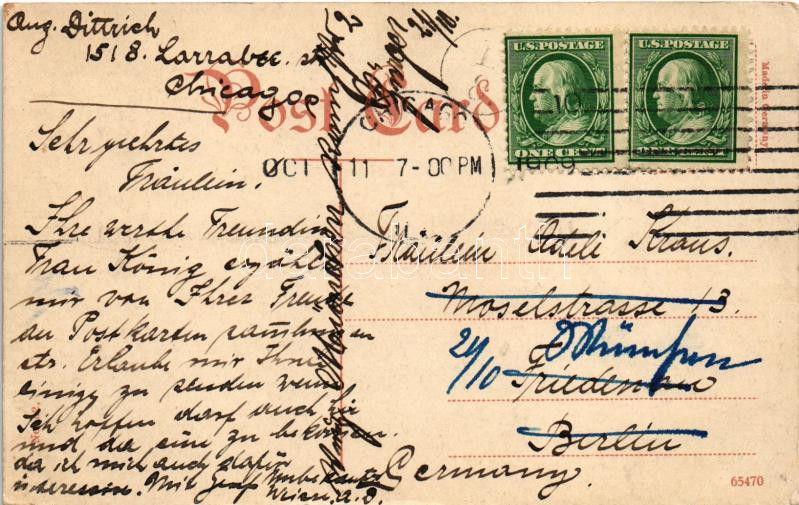 Aug. Dittrich
1518. Larrabee. st
Chicago
Post Card
U.S. POSTAGE
ONE CENT
U.S. POSTAGE
ONE CENT
Made in Germany
CHICAGO
OCT 11 7-00 PM 1909
ILL.
Sehr geehrtes
Fräulein.
Ihre werthe Freundin
Frau König erzählt
mir von Ihrer Freude
an Postkarten
etc. Erlaube mir Ihnen
einige zu senden wenn
Ich hoffen darf auch
und da eine zu bekommen.
da ich mich auch dafür
Mit Unbekannter
Fräulein Adeli Kraus.
Moselstrasse 13.
24/10
Friedenau
Berlin
Germany.
24/10.
darabanth
65470